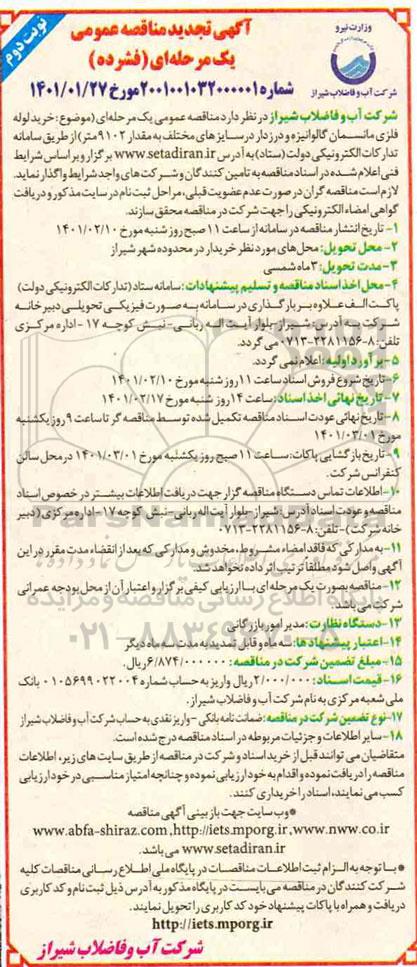 نوبت دوم
وزارت نیرو
شرکت آب و فاضلاب شیراز
آگهی تجدید مناقصه عمومی
یک مرحله‌ای (فشرده)
شماره ۲۰۰۱۰۰۱۰۳۲۰۰۰۰۰۱ مورخ ۱۴۰۱/۰۱/۲۷
شرکت آب و فاضلاب شیراز در نظر دارد مناقصه عمومی یک مرحله‌ای (موضوع: خرید لوله
فلزی مانسمان گالوانیزه و درزدار در سایزهای مختلف به مقدار ۹۱۰۲ متر) از طریق سامانه
تدارکات الکترونیکی دولت (ستاد) به آدرس www.setadiran.ir برگزار و بر اساس شرایط
فنی اعلام شده در اسناد مناقصه به تامین کنندگان و شرکت‌های واجد شرایط واگذار نماید.
لازم است مناقصه گران در صورت عدم عضویت قبلی، مراحل ثبت نام در سایت مذکور و دریافت
گواهی امضاء الکترونیکی را جهت شرکت در مناقصه محقق سازند.
۱- تاریخ انتشار مناقصه در سامانه از ساعت ۱۱ صبح روز شنبه مورخ ۱۴۰۱/۰۲/۱۰
۲- محل تحویل: محل‌های مورد نظر خریدار در محدوده شهر شیراز
۳- مدت تحویل: ۳ ماه شمسی
۴- محل اخذ اسناد مناقصه و تسلیم پیشنهادات: سامانه ستاد (تدارکات الکترونیکی دولت)
پاکت الف علاوه بر بارگذاری در سامانه به صورت فیزیکی تحویلی دبیرخانه
شرکت به آدرس شیراز- بلوار آیت اله ربانی- نبش کوچه ۱۷ - اداره مرکزی
تلفن: ۸-۳۲۲۸۱۱۵۶-۰۷۱۳ می گردد.
۵- برآورد اولیه: اعلام نمی گردد.
۶- تاریخ شروع فروش اسناد ساعت ۱۱ روز شنبه مورخ ۱۴۰۱/۰۲/۱۰
۷- تاریخ نهائی اخذ اسناد: ساعت ۱۴ روز شنبه مورخ ۱۴۰۱/۰۲/۱۷
۸- تاریخ نهائی عودت اسناد مناقصه تکمیل شده توسط مناقصه گر تا ساعت ۹ روز یکشنبه
مورخ ۱۴۰۱/۰۳/۰۱
۹- تاریخ بازگشایی پاکات: ساعت ۱۱ صبح روز یکشنبه مورخ ۱۴۰۱/۰۳/۰۱ در محل سالن
کنفرانس شرکت.
۱۰- اطلاعات تماس دستگاه مناقصه گزار جهت دریافت اطلاعات بیشتر در خصوص اسناد
مناقصه و عودت اسناد آدرس: شیراز- بلوار آیت اله ربانی- نبش کوچه ۱۷- اداره مرکزی (دبیر
خانه شرکت)- تلفن:
۱۱- به مدارکی که فاقد امضاء مشروط، مخدوش و مدارکی که بعد از انقضاء مدت مقرر در این
آگهی واصل شود مطلقا ترتیب اثر داده نخواهد شد.
۱۲- مناقصه بصورت یک مرحله ای با ارزیابی کیفی برگزار و اعتبار آن از محل بودجه عمرانی
شرکت می باشد.
۱۳- دستگاه نظارت: مدیر امور بازرگانی
۱۴- اعتبار پیشنهادها: سه ماه و قابل تمدید به مدت سه ماه دیگر
۱۵- مبلغ تضمین شرکت در مناقصه: ۶/۸۷۴/۰۰۰۰۰۰ ریال.
۱۶- قیمت اسناد: ۲/۰۰۰/۰۰۰ ریال واریز به حساب شماره ۰۱۰۵۶۹۹۰۲۲۰۰۴ بانک
ملی شعبه مرکزی به نام شرکت آب و فاضلاب شیراز.
۱۷- نوع تضمین شرکت در مناقصه: ضمانت نامه بانکی - واریز نقدی به حساب شرکت آب و فاضلاب شیراز
۱۸- سایر اطلاعات و جزئیات مربوطه در اسناد مناقصه درج شده است.
متقاضیان می توانند قبل از خرید اسناد و شرکت در مناقصه از طریق سایت های زیر، اطلاعات
مناقصه را دریافت نموده و اقدام به خود ارزیابی نموده و چنانچه امتیاز مناسبی در خود ارزیابی
کسب می نمایند، اسناد را خریداری کنند.
* وب سایت جهت بازبینی آگهی مناقصه
www.abfa-shiraz.com ,http://iets.mporg.ir ,www.nww.co.ir
www.setadiran.ir می باشد.
* با توجه به الزام ثبت اطلاعات مناقصات در پایگاه ملی اطلاع رسانی مناقصات کلیه
شرکت کنندگان در مناقصه می بایست در پایگاه مذکور به آدرس ذیل ثبت نام و کد کاربری
دریافت و همراه با پاکات پیشنهاد خود کد کاربری را تحویل نمایند.
http://iets.mporg.ir
شرکت آب و فاضلاب شیراز